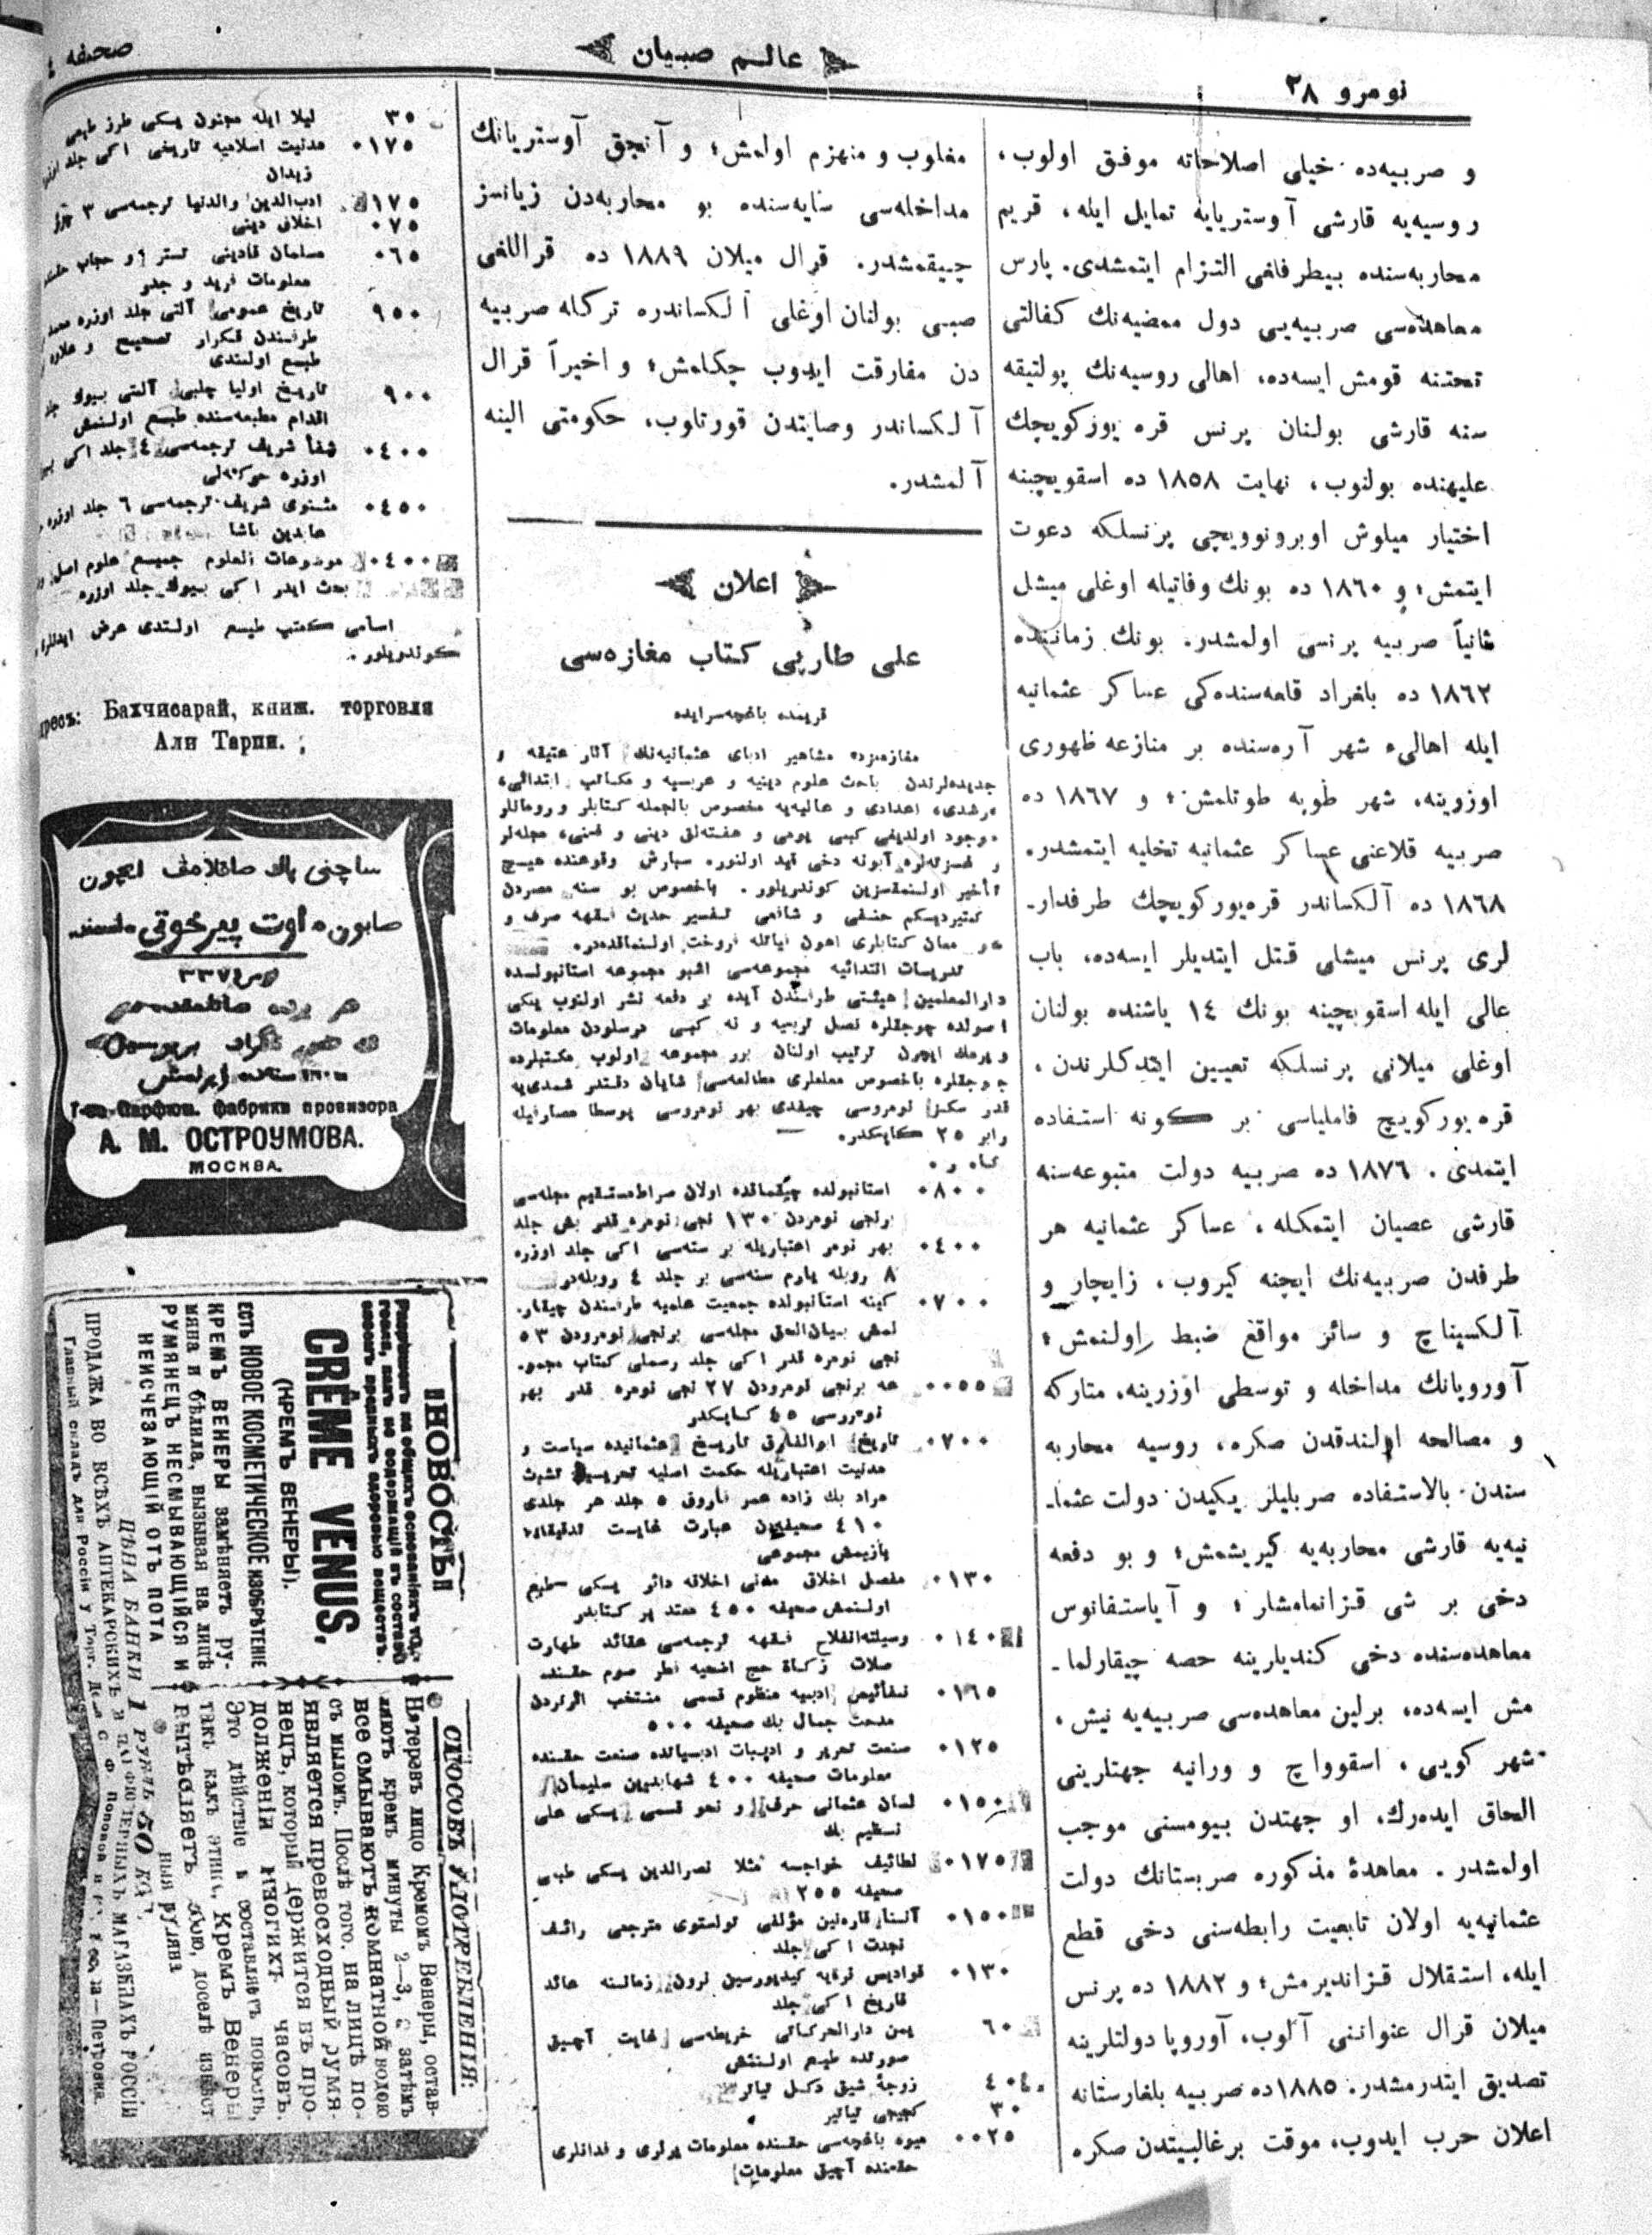 نومرو ٢٨
عالم صبيان
صحيفه ٤
و صربيه‌ده خيلى اصلاحاته موفق اولوب،
روسيه‌يه قارشى آوستريايه تمايل ايله، قريم
محاربه‌سنده بيطرفاغى التزام ايتمشدى. پارس
معاهده‌سى صربيه‌يى دول ممضيه‌نك كفالتى
تحتنه قومش ايسه‌ده، اهالى روسيه‌نك پولتيقه
سنه قارشى بولنان پرنس قره يوركويچك
عليهنده بولنوب، نهايت ١٨٥٨ ده اسقوپچينه
اختيار ميلوش اوبرونوويچى پرنسلكه دعوت
ايتمش؛ و ١٨٦٠ ده بونك وفاتيله اوغلى ميشل
ثانياً صربيه پرنسى اولمشدر. بونك زماننده
١٨٦٢ ده بلغراد قلعه‌سنده‌كى عساكر عثمانيه
ايله اهالىء شهر آره‌سنده بر منازعه ظهورى
اوزوينه، شهر طوپه طوتلمش؛ و ١٨٦٧ ده
صربيه قلاعنى عساكر عثمانيه تخليه ايتمشدر.
١٨٦٨ ده آلكساندر قره‌يوركويچك طرفدار-
لرى پرنس ميشلى قتل ايتديلر ايسه‌ده، باب
عالى ايله اسقوپچينه بونك ١٤ ياشنده بولنان
اوغلى ميلانى پرنسلكه تعيين ايتدكلرندن،
قره يوركويچ فاملياسى بر كونه استفاده
ايتمدى. ١٨٧٦ ده صربيه دولت متبوعه‌سنه
قارشى عصيان ايتمكله، عساكر عثمانيه هر
طرفدن صربيه‌نك ايچنه كيروب، زايچار و
آلكسيناچ و سائر مواقع ضبط اولنمش؛
آوروپانك مداخله و توسطى اوزرينه، متاركه
و مصالحه اولندقدن صكره، روسيه محاربه
سندن بالاستفاده صربليلر يكيدن دولت عثما-
نيه‌يه قارشى محاربه‌يه كيريشمش؛ و بو دفعه
دخى بر شى قزانمامشلر؛ و آياستفانوس
معاهده‌سنده دخى كنديلرينه حصه چيقارلما-
مش ايسه‌ده، برلين معاهده‌سى صربيه‌يه نيش،
شهر كويى، اسقوواچ و ورانيه جهتلرينى
الحاق ايده‌رك، او جهتدن بيومسنى موجب
اولمشدر. معاهدۀ مذكوره صربستانك دولت
عثمانيه‌يه اولان تابعيت رابطه‌سنى دخى قطع
ايله، استقلال قزانديرمش؛ و ١٨٨٢ ده پرنس
ميلان قرال عنواننى آلوب، آوروپا دولتلرينه
تصديق ايتدرمشدر. ١٨٨٥ ده صربيه بلغارستانه
اعلان حرب ايدوب، موقت برغالبيتدن صكره
مغلوب و منهزم اولمش؛ و آنجق آوستريانك
مداخله‌سى سايه‌سنده بو محاربه‌دن زيانسز
چيقمشدر. قرال ميلان ١٨٨٩ ده قراللغى
صبى بولنان اوغلى آلكساندره تركله صربيه
دن مفارقت ايدوب چكلمش؛ و اخيراً قرال
آلكساندر وصايتدن قورتلوب، حكومتى الينه
آلمشدر.
اعلان
على طارپى كتاب مغازه‌سى
قريمده باغچه‌سرايده
مغازه‌مزده مشاهير ادباى عثمانيه‌نك آثار عتيقه و
جديده‌لرندن باحث علوم دينيه و عربيه و مكاتب ابتدائى،
رشدى، اعدادى و عاليه‌يه مخصوص بالجمله كتابلر و رومانلر
موجود اولديغى كبى يومى و هفته‌لق دينى و فنى، مجله‌لر
و غزته‌لره آبونه دخى قيد اولنور. سپارش وقوعنده هيچ
تأخير اولنمقسزين كوندريلور. باخصوص بو سنه مصردن
كتيرديكم حنفى و شافعى تفسير حديث فقهه صرف و
نحو معان كتابلرى اهون فيأتله فروخت اولنماقده‌در.
تدريسات ابتدائيه مجموعه‌سى اشبو مجموعه استانبولده
دارالمعلمين هيئتى طرفندن آيده بر دفعه نشر اولنوب يكى
اصولده چوجقلره نصل تربيه و نه كبى درسلردن معلومات
ويرمك ايچون ترتيب اولنان بر مجموعه اولوب مكتبلرده
چوجقلره باخصوص معلملرى مطالعه‌سى شايان دقتدر شمدى‌يه
قدر سكز نومروسى چيقدى بهر نومروسى پوسطا مصارفيله
برابر ٢٥ كاپكدر.
٠٨٠٠ استانبولده چيقماقده اولان صراط‌مستقيم مجله‌سى
برنجى نومردن ١٣٠ نجى نومره قدر بش جلد
٠٤٠٠ بهر نومر اعتباريله بر سنه‌سى اكى جلد اوزره
٨ روبله يارم سنه‌سى بر جلد ٤ روبله‌در
٠٧٠٠ كينه استانبولده جمعيت علميه طرفندن چيقار-
لمش بيان‌الحق مجله‌سى برنجى نومرودن ٥٣
نجى نومره قدر اكى جلد رسملى كتاب مجمو-
٠٠٥٥ عه برنجى نومرودن ٢٧ نجى نومره قدر بهر
نومروسى ٤٥ كاپكدر
٠٧٠٠ تاريخ ابوالفاروق تاريخ عثمانيده سياست و
مدنيت اعتباريله حكمت اصليه تحريسنه تشبث
مراد بك زاده عمر فاروق ٥ جلد هر جلدى
٤١٠ صحيفه‌دن عبارت غايت تدقيقاتله
يازيمش مجموعى
٠١٣٠ مفصل اخلاق مدنى اخلاقه دائر يسكى طبع
اولنمش صحيفه ٤٥٠ معتد بر كتابدر
٠١٤٠ وسيلته‌الفلاح فقهه ترجمه‌سى عقائد طهارت
صلات زكاة حج اضحيه فطر صوم حقنده
٠١٦٥ نفائس ادبيه منظوم قسمى منتخب اثرلردن
مدحت جمال بك صحيفه ٥٠٠
٠١٢٥ صنعت تحرير و ادبيات ادبياتده صنعت حقنده
معلومات صحيفه ٤٠٠ شهابدين سليمان
٠١٥٠ لسان عثمانى صرف و نحو قسمى يسكى على
نظيم بك
٠١٧٥ لطائيف خواجه ملا نصرالدين يسكى طبى
صحيفه ٢٥٥
٠١٥٠ آننا قاره‌نين مؤلفى تولستوى مترجمى رائف
نجدت اكى جلد
٠١٣٠ قواديس نره‌يه كيديورسين نرون زمانسنه عائد
تاريخ اكى جلد
٦٠ يمن دارالحركاتى خريطه‌سى غايت آچيق
صورتده طبع اولنمش
٤٠٤٠ زوجۀ شيق دكل تياتر
٣٠ كچيجى تياتر
٠٠٢٥ ميوه باغچه‌سى حقنده معلومات يرلرى و فدانلرى
حقنده آچيق معلومات
٣٥ ليلا ايله مجنون يسكى طرز طبعى
٠١٧٥ مدنيت اسلاميه تاريخى اكى جلد
زيدان
١٧٥ ادب‌الدين والدنيا ترجمه‌سى ٣
٠٧٥ اخلاق دينى
٠٦٥ مسلمان قادينى تستر و حجاب حقنده
معلومات فريد و جدو
٩٥٠ تاريخ عمومى آلتى جلد اوزره
طرفندن تكرار تصحيح و علاوه
طبع اولندى
٩٠٠ تاريخ اوليا چلبى آلتى بيوك جلد
اقدام مطبعه‌سنده طبع اولنمش
٠٤٠٠ شفأ شريف ترجمه‌سى ٤ جلد اكى
اوزره حركه‌لى
٠٤٥٠ مثنوى شريف ترجمه‌سى ٦ جلد اوزره
عابدين پاشا
٠٤٠٠ موضوعات العلوم جميع علوم اصل
بحث ايدر اكى بيوك جلد اوزره
اسامى كتب طبع اولندى عرض ايدنلره
كوندريلور.
Бахчисарай, книж. торговля
Али Тарпи.
ساچنى پاك صاقلامق ايچون
صابون
نومر ٣٣٧
هر يرده صاتلمقده‌در
Т-ва Парфюм. фабрики провизора
А. М. ОСТРОУМОВА.
МОСКВА.
НОВОСТЬ!
Разрѣшенъ на общихъ основаніяхъ тор-
говли, какъ не содержащій въ составѣ
своемъ вредныхъ здоровью веществъ.
CRÊME VENUS,
(КРЕМЪ ВЕНЕРЫ).
ЕСТЬ НОВОЕ КОСМЕТИЧЕСКОЕ ИЗОБРѢТЕНІЕ
КРЕМЪ ВЕНЕРЫ замѣняетъ ру-
мяна и бѣлила, вызывая на лицѣ
РУМЯНЕЦЪ НЕСМЫВАЮЩІЙСЯ И
НЕИСЧЕЗАЮЩІЙ ОТЪ ПОТА
ЦѢНА БАНКИ 1 РУБЛЬ 50 КОП.
ПРОДАЖА ВО ВСѢХЪ АПТЕКАРСКИХЪ И ПАРФЮМЕРНЫХЪ МАГАЗИНАХЪ РОССІИ
Главный складъ для Россіи у Торг. Дома
СПОСОБЪ УПОТРЕБЛЕНІЯ:
Натеревъ лицо Кремомъ Венеры, остав-
ляютъ кремъ минуты 2—3, а затѣмъ
все смываютъ комнатной водою
съ мыломъ. Послѣ того, на лицѣ по-
является превосходный румя-
нецъ, который держится въ про-
долженіи многихъ часовъ.
Это дѣйствіе и составляетъ новость,
такъ какъ этимъ, Кремъ Венеры
вытѣсняетъ собою, доселѣ извѣст
ныя румяна